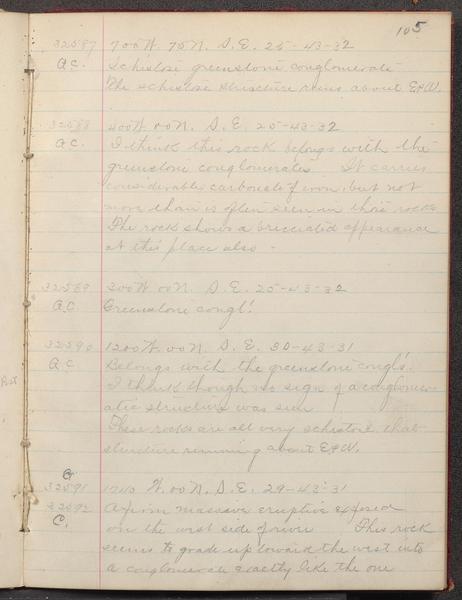 105
32587 700 W. 75 N. S.E. 25-43-32
A.C. Schistose greenstone conglomerate
The schistose structure runs about E&W.
32588 200 W. 00 N. S.E. 25-43-32
A.C. I think this rock belongs with the
greenstone conglomerates. It carries
considerable carbonate of iron, but not
more than is often seen in these rocks
The rock shows a brecciated appearance
at this place also.
32589 300 W. 00 N. S.E. 25-43-32
A.C. Greenstone congl.
32590 1200 W. 00 N. S.E. 30-43-31
A.C. Belongs with the greenstone congls.
I think though no sign of a conglomer-
atic structure was seen
These rocks are all very schistose, that
structure running about E&W.
G
32591 1740 W. 00 N. S.E. 29-43-31
32592 A firm massive eruptive exposed
C. on the west side of river This rock
seems to grade up toward the west into
a conglomerate exactly like the one